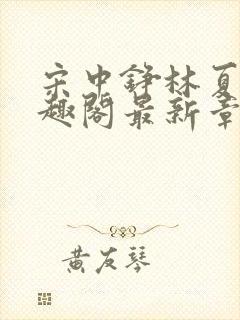 宋中铮林夏
趣阁最新章
黄友琴